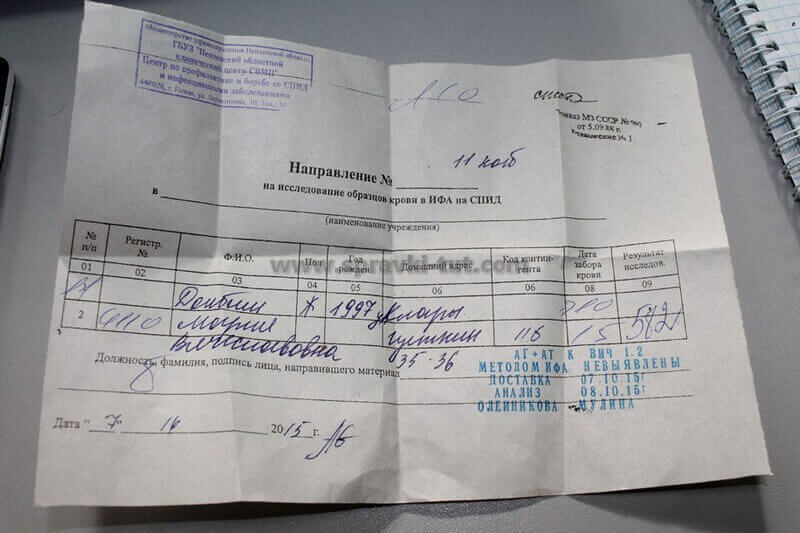 Министерство здравоохранения Пензенской области
ГБУЗ "Пензенский областной
клинический центр СВМП"
Центр по профилактике и борьбе со СПИД
и инфекционными заболеваниями
440026, г. Пенза, ул. Лермонтова, 30, Тел.:
Приказ МЗ СССР №
от 5.09.88 г.
Приложение № 1
11 каб
Направление №
на исследование образцов крови в ИФА на СПИД
в
(наименование учреждения)
№ п/п Регистр. № Ф.И.О. Пол Год рожден. Домашний адрес Код контин-гента Дата забора крови Результат исследов.
01 02 03 04 05 06 06 08 09
www.spravki-tut.com
Ж 1997 ул Клары
2 Мария Цеткин 116
Вячеславовна 35-36
Должность, фамилия, подпись лица, направившего материал
АГ+АТ К ВИЧ 1.2
МЕТОДОМ ИФА НЕВЫЯВЛЕНЫ
ДОСТАВКА 07.10.15г
АНАЛИЗ 08.10.15г
ОЛЕЙНИКОВА МУЛИНА
Дата "7" 2015 г.